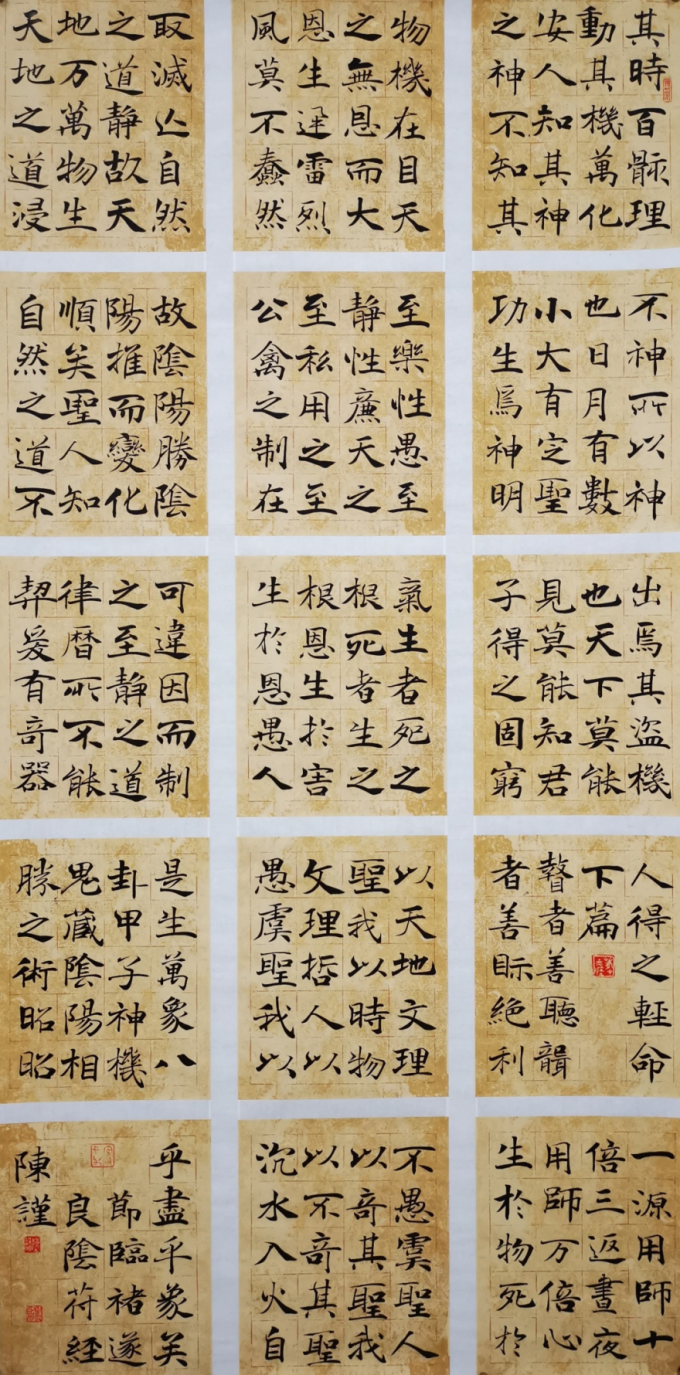 其時百骸理
動其機萬化
安人知其神
之神不知其
不神所以神
也日月有數
小大有定聖
功生焉神明
出焉其盜機
也天下莫能
見莫能知君
子得之固窮
人得之輕命
下篇
瞽者善聽聾
者善眎絕利
一源用師十
倍三返晝夜
用師万倍心
生於物死於
物機在目天
之無恩而大
恩生迅雷烈
風莫不蠢然
至樂性愚至
静性廉天之
至私用之至
公禽之制在
氣生者死之
根死者生之
根恩生於害
生於恩愚人
以天地文理
聖我以時物
文理哲人以
愚虞聖我以
不愚虞聖人
以奇其聖我
以不奇其聖
沉水入火自
取滅亡自然
之道静故天
地万萬物生
天地之道浸
故陰陽勝陰
陽推而變化
順矣聖人知
自然之道不
可違因而制
之至静之道
律暦所不能
契爰有奇器
是生萬象八
卦甲子神機
鬼藏陰陽相
勝之術昭昭
乎盡乎象矣
節臨褚遂
良陰符經
陳謹